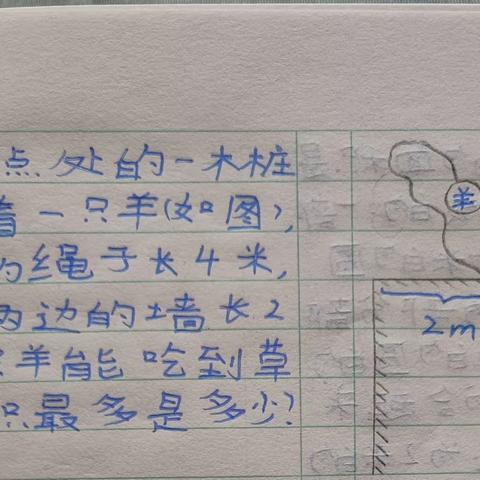 点处的一木桩
着一只羊(如图),
的绳子长4米,
两边的墙长2
羊能吃到草
只最多是多少?
羊
2m